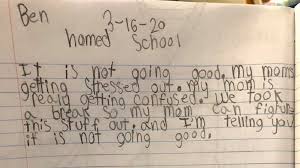 Ben 3-16-20
homed school
It is not going good. my moms
getting stressed out. my mom is
realy getting confused. we took
a break so my mom can figure
this stuff out. and I'm telling you
it is not going good.